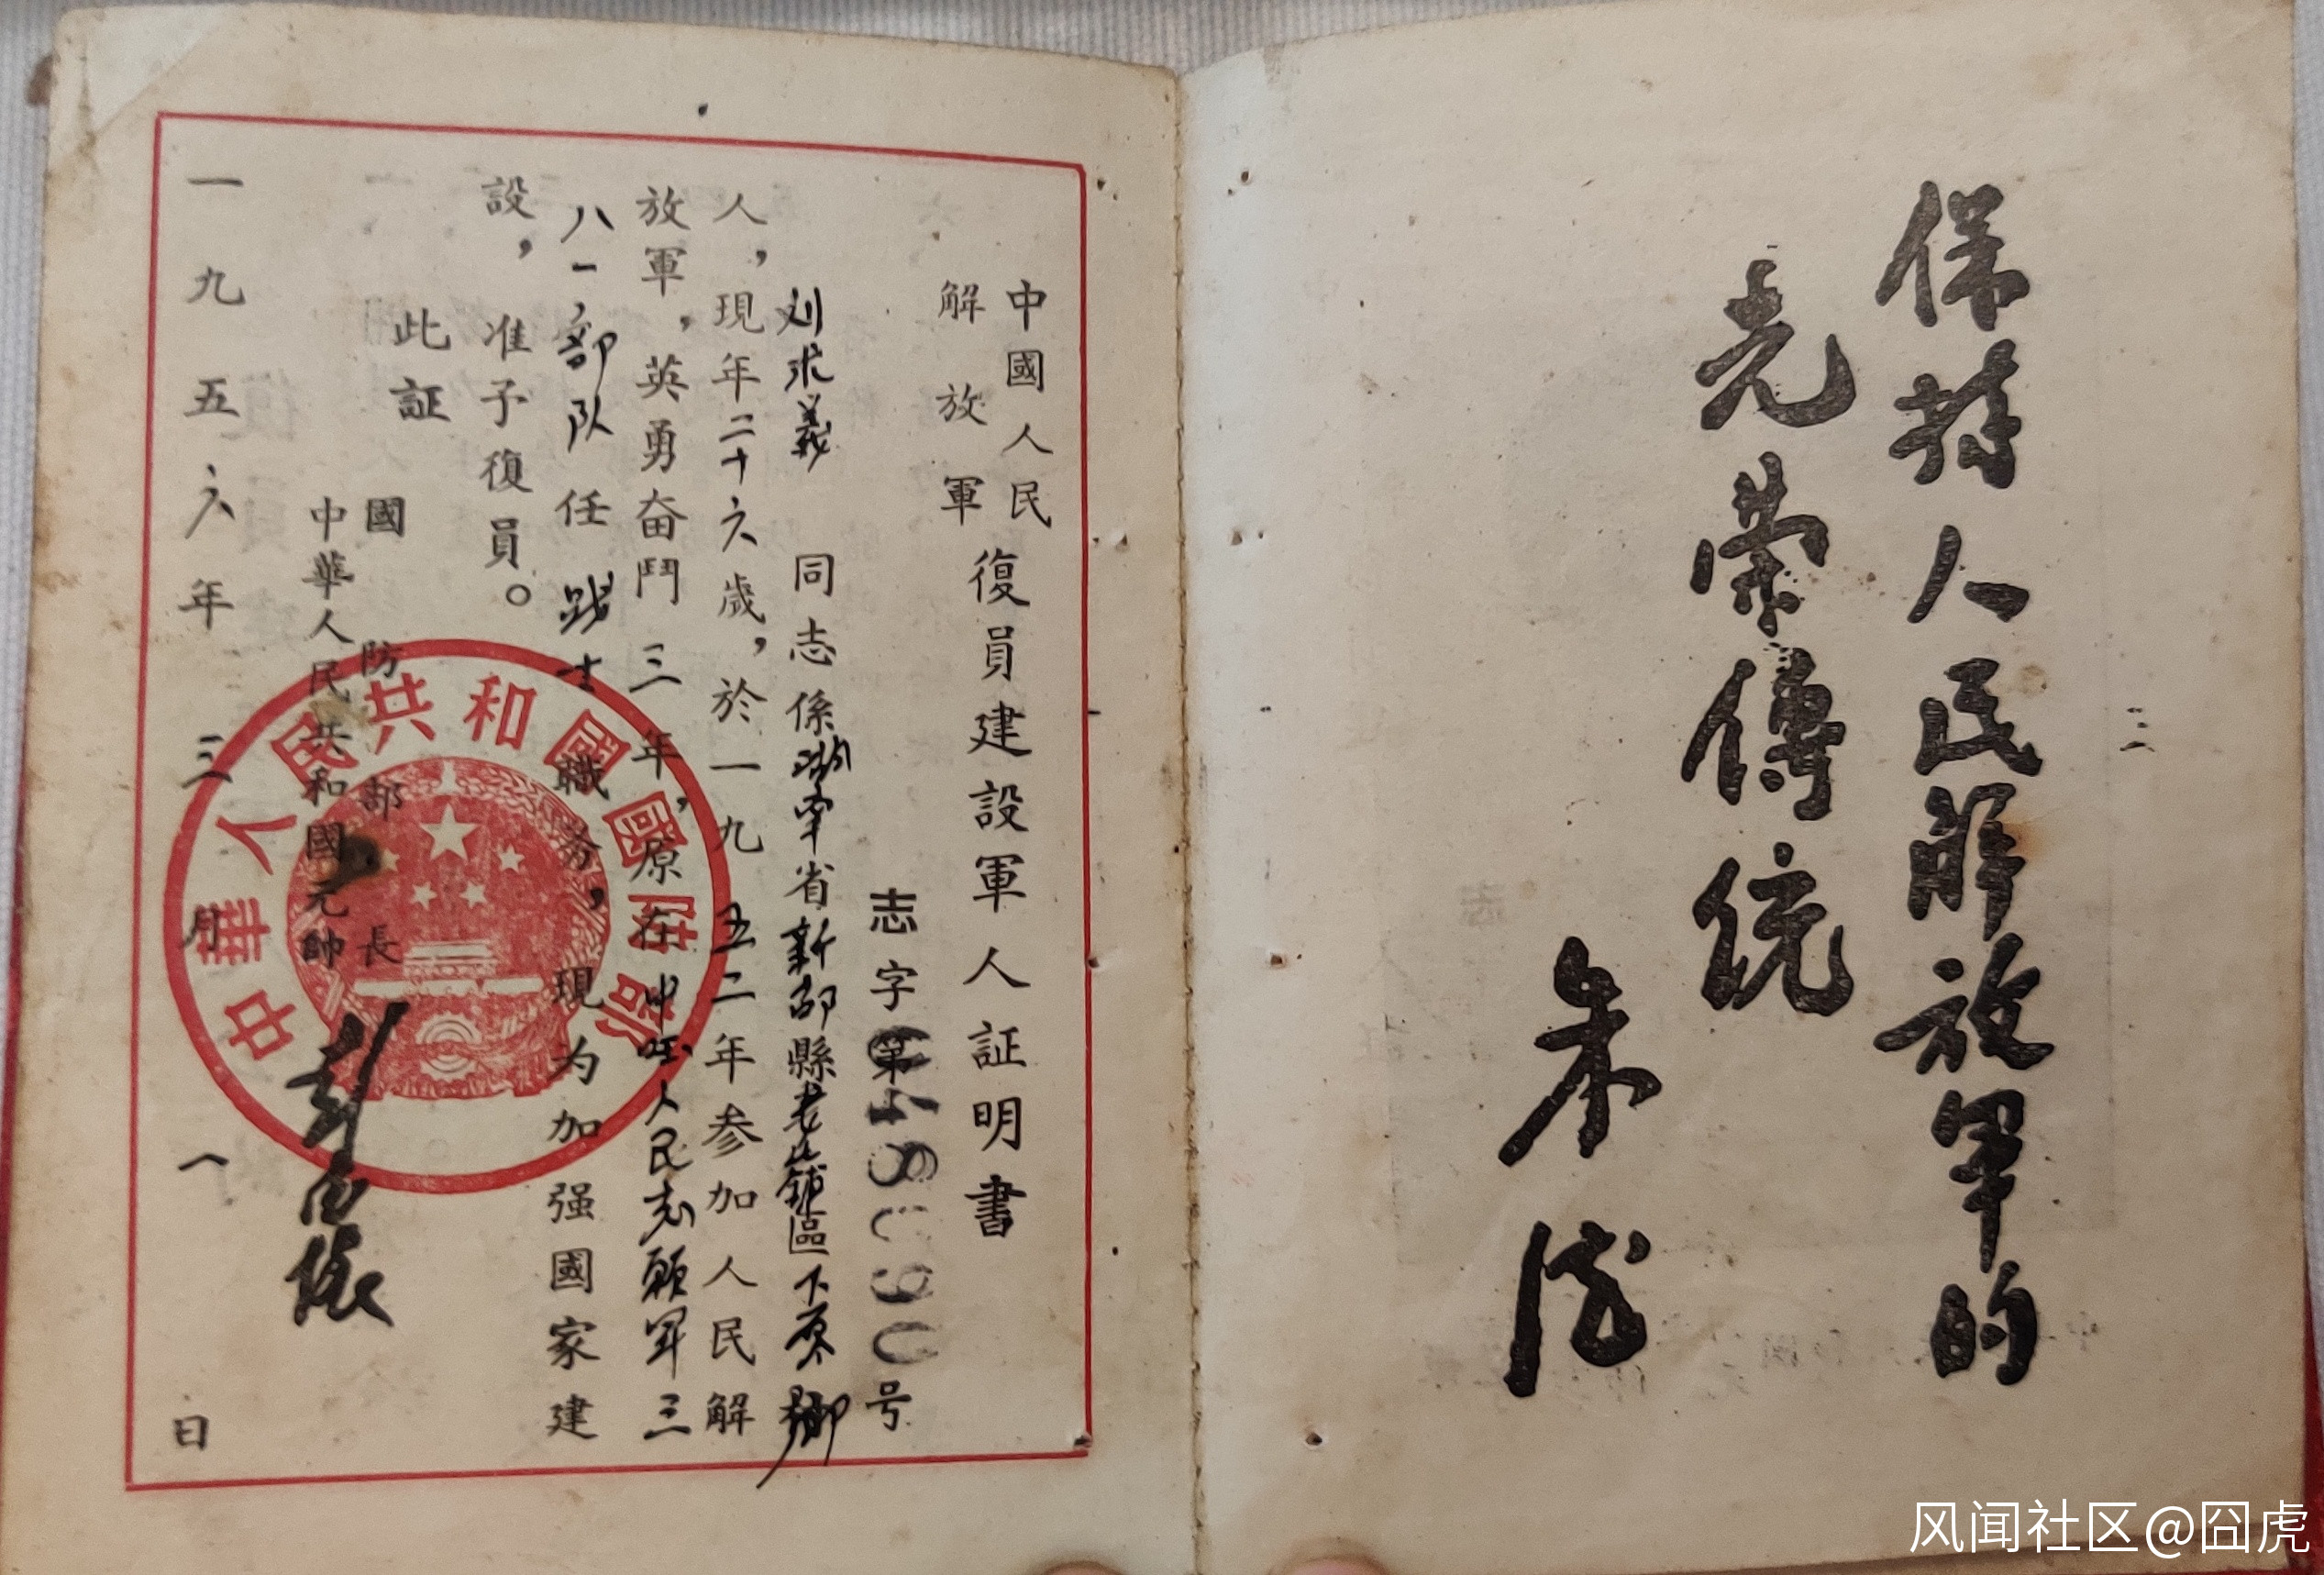 二
保持人民解放軍的
光荣傳统
朱德
中國人民
解放軍
復員建設軍人証明書
志字第号
刘求義 同志係湖南省新邵縣老鋪區下源鄉
人，現年二十六歲，於一九五二年参加人民解
放軍，英勇奋鬥三年，原在中国人民志願军三
八一部队任战士職务，現为加强國家建
設，准予復員。
此証
國防部長
中華人民共和國元帥 彭德懷
一九五六年三月 日
中華人民共和國國防部
风闻社区@囧虎